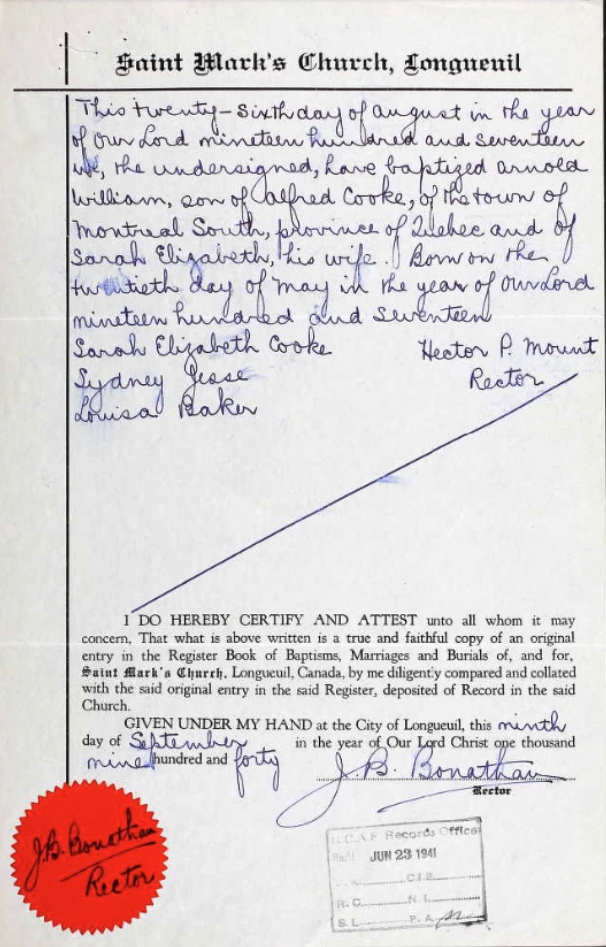 Saint Mark's Church, Longueuil
This twenty-sixth day of August in the year
of Our Lord nineteen hundred and seventeen
we, the undersigned, have baptized Arnold
William, son of Alfred Cooke, of the town of
Montreal South, province of Quebec and of
Sarah Elizabeth, his wife. Born on the
twentieth day of May in the year of Our Lord
nineteen hundred and seventeen
Sarah Elizabeth Cooke Hector P. Mount
Sydney Jesse Rector
Louisa Baker
I DO HEREBY CERTIFY AND ATTEST unto all whom it may
concern, That what is above written is a true and faithful copy of an original
entry in the Register Book of Baptisms, Marriages and Burials of, and for,
Saint Mark's Church, Longueuil, Canada, by me diligently compared and collated
with the said original entry in the said Register, deposited of Record in the said
Church.
GIVEN UNDER MY HAND at the City of Longueuil, this ninth
day of September in the year of Our Lord Christ one thousand
nine hundred and forty
J. B. Bonathan
Rector
J.B. Bonathan
Rector
R.C.A.F. Records Office
JUN 23 1941
C.I.S.
R.C. N.I.
S.L. P.A.